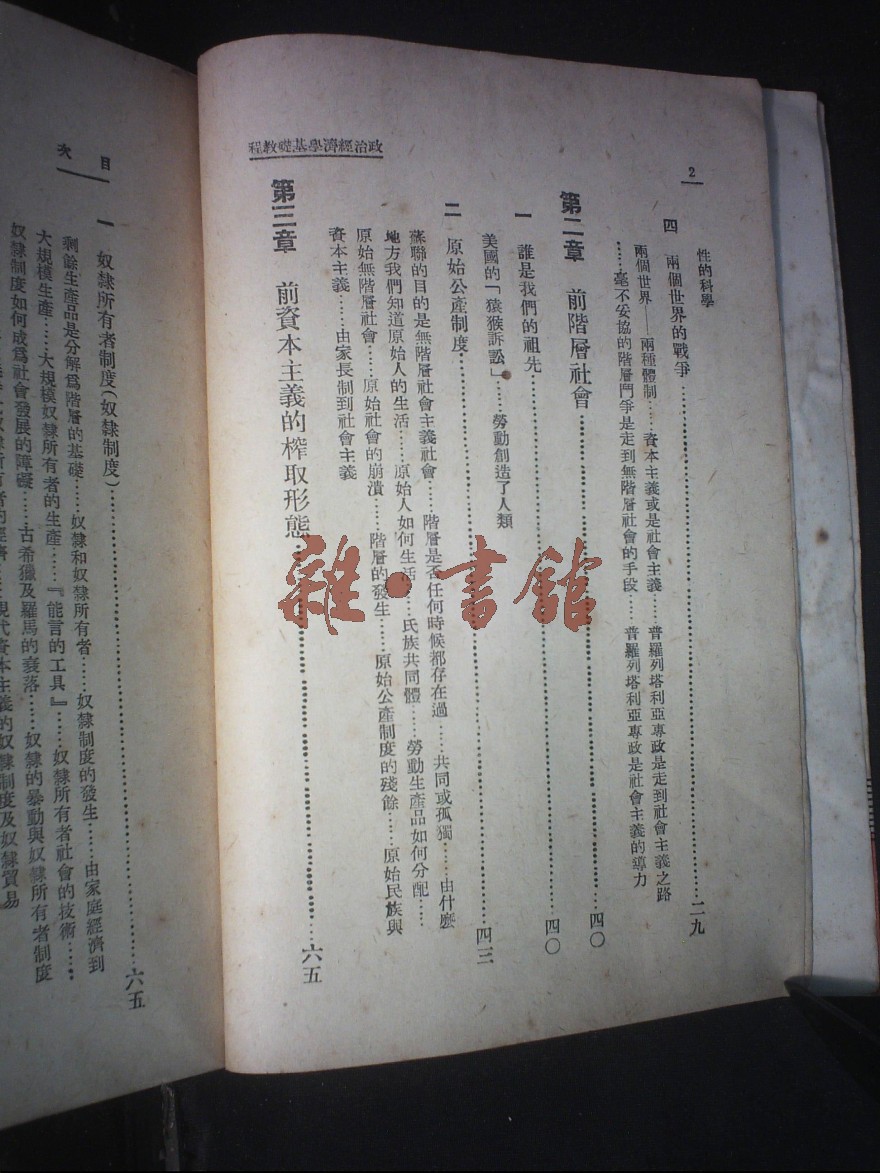 2
政治經濟學基礎教程
性的科學
四 兩個世界的戰爭……二九
兩個世界——兩種體制……資本主義或是社會主義……普羅列塔利亞專政是走到社會主義之路
……毫不妥協的階層鬥爭是走到無階層社會的手段……普羅列塔利亞專政是社會主義的導力
第二章 前階層社會……四〇
一 誰是我們的祖先……四〇
美國的「猿猴訴訟」……勞動創造了人類
二 原始公產制度……四三
蘇聯的目的是無階層社會主義社會……階層是否任何時候都存在過……共同或孤獨……由什麼
地方我們知道原始人的生活……原始人如何生活……氏族共同體……勞動生產品如何分配……
原始無階層社會……原始社會的崩潰……階層的發生……原始公產制度的殘餘……原始民族與
資本主義……由家長制到社會主義
第三章 前資本主義的榨取形態……六五
目次
一 奴隸所有者制度(奴隸制度)……六五
剩餘生產品是分解爲階層的基礎……奴隸和奴隸所有者……奴隸制度的發生……由家庭經濟到
大規模生產……大規模奴隸所有者的生產……『能言的工具』……奴隸所有者社會的技術……
奴隸制度如何成爲社會發展的障礙……古希臘及羅馬的衰落……奴隸的暴動與奴隸所有者制度
現代資本主義的奴隸制度及奴隸貿易
雜·書館